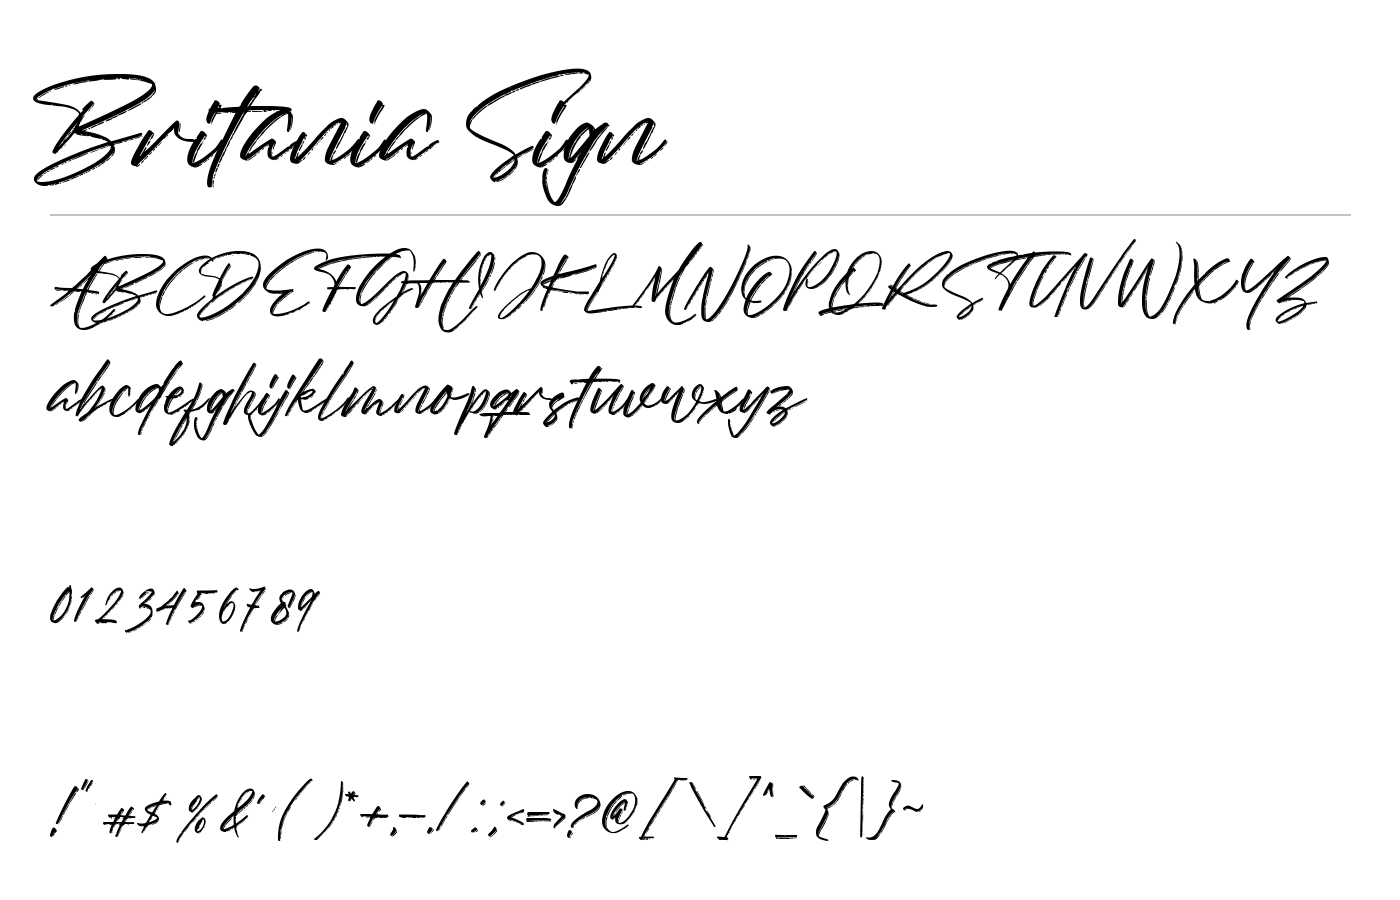 Britania Sign
ABCDEFGHIJKLMNOPQRSTUVWXYZ
abcdefghijklmnopqrstuvwxyz
0123456789
!"#$%&'()*+,-./:;<=>?@[\]^_`{|}~